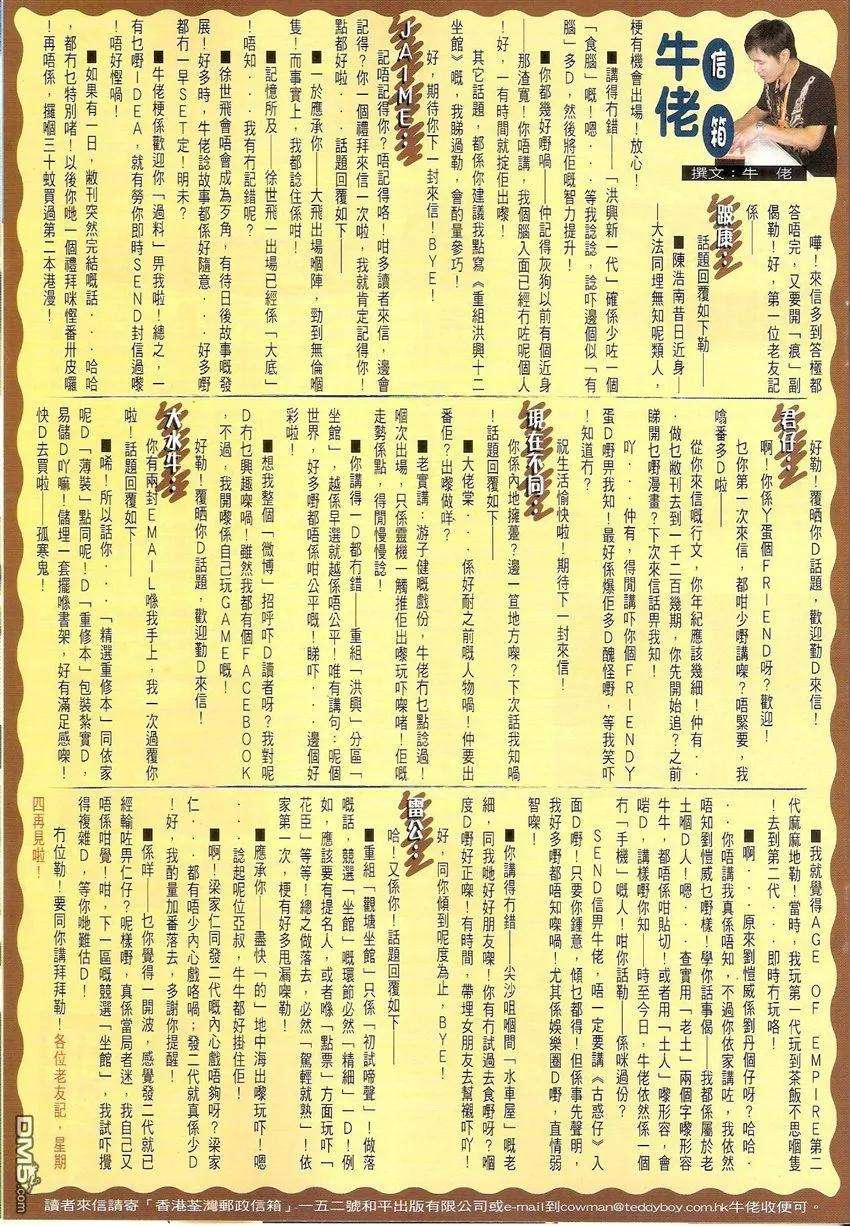 牛佬
信箱
撰文：牛佬
嘩！來信多到答極都
答唔完，又要開「痕」副
偈勒！好，第一位老友記
係——
跛康：
話題回覆如下勒——
■陳浩南昔日近身——
——大法同埋無知呢類人，
梗有機會出場！放心！
■講得冇錯——「洪興新一代」確係少咗一個
「食腦」嘅！嗯．．．等我諗諗，諗吓邊個似「有
腦」多D，然後將佢嘅智力提升！
■你都幾好嘢喎——仲記得灰狗以前有個近身
——那渣寬！你唔講，我個腦入面已經冇咗呢個人
！好，一有時間就掟佢出嚟！
其它話題，都係你建議我點寫《重組洪興十二
坐館》嘅，我睇過勒，會酌量參巧！
好，期待你下一封來信！BYE！
JAIME：
記唔記得你？唔記得咯！咁多讀者來信，邊會
記得？你一個禮拜來信一次啦，我就肯定記得你！
點都好啦．．．話題回覆如下——
■一於應承你——大飛出場嗰陣，勁到無倫嗰
隻！而事實上，我都諗住係咁！
■記憶所及——徐世飛一出場已經係「大底」
！唔知．．．我有冇記錯呢？
■徐世飛會唔會成為歹角，有待日後故事嘅發
展！好多時，牛佬諗故事都係好隨意．．．好多嘢
都冇一早SET定！明未？
■牛佬梗係歡迎你「過料」畀我啦！總之，一
有乜嘢IDEA，就有勞你即時SEND封信過嚟
！唔好慳喎！
■如果有一日，敝刊突然完結嘅話．．．哈哈
，都冇乜特別啫！以後你哋一個禮拜咪慳番卅皮囉
！再唔係，攞嗰三十蚊買過第二本港漫！
好勒！覆晒你D話題，歡迎勤D來信！
君仔：
啊！你係Y蛋個FRIEND呀？歡迎！
乜你第一次來信，都咁少嘢講㗎？唔緊要，我
噏番多D啦——
從你來信嘅行文，你年紀應該幾細！仲有．．
．做乜敝刊去到一千二百幾期，你先開始追？之前
睇開乜嘢漫畫？下次來信話畀我知！
吖．．．仲有，得閒講吓你個FRIEND Y
蛋D嘢畀我知！最好係爆佢多D醜怪嘢，等我笑吓
！知道冇？
祝生活愉快啦！期待下一封來信！
現在不同：
你係內地擁躉？邊一笪地方㗎？下次話我知喎
！話題回覆如下——
■大佬棠．．．係好耐之前嘅人物喎！仲要出
番佢？出嚟做咩？
■老實講：游子健嘅戲份，牛佬冇乜點諗過！
嗰次出場，只係靈機一觸推佢出嚟玩吓㗎啫！佢嘅
走勢係點，得閒慢慢諗！
■你講得一D都冇錯——重組「洪興」分區「
坐館」，越係早選就越係唔公平！唯有講句：呢個
世界，好多嘢都唔係咁公平嘅！睇吓．．．邊個好
彩啦！
■想我整個「微博」招呼吓D讀者呀？我對呢
D冇乜興趣㗎喎！雖然我都有個FACEBOOK
，不過，我開嚟係自己玩GAME嘅！
好勒！覆晒你D話題，歡迎勤D來信！
大水牛：
你有兩封EMAIL喺我手上，我一次過覆你
啦！話題回覆如下——
■唏！所以話你．．．「精選重修本」同依家
呢D「薄裝」點同呢！D「重修本」包裝紮實D，
易儲D吖嘛！儲埋一套擺喺書架，好有滿足感㗎！
快D去買啦！——孤寒鬼！
■我就覺得AGE OF EMPIRE第二
代麻麻地勒！當時，我玩第一代玩到茶飯不思嗰隻
！去到第二代．．．即時冇玩咯！
■啊．．．原來劉愷威係劉丹個仔呀？哈哈．
．．你唔講我真係唔知，不過你依家講咗，我依然
唔知劉愷威乜嘢樣！學你話事偈——我都係屬於老
土嗰D人！嗯．．．查實用「老土」兩個字嚟形容
牛牛，都唔係咁貼切！或者用「土人」嚟形容，會
啱D，講樣嘢你知——時至今日，牛佬依然係一個
冇「手機」嘅人！咁你話勒——係咪過份？
SEND信畀牛佬，唔一定要講《古惑仔》入
面D嘢！只要你鍾意，傾乜都得！但係事先聲明，
我好多嘢都唔知㗎喎！尤其係娛樂圈D嘢，直情弱
智㗎！
■你講得冇錯——尖沙咀嗰間「水車屋」嘅老
細，同我哋好好朋友㗎！你有冇試過去食嘢呀？嗰
度D嘢好正㗎！有時間，帶埋女朋友去幫襯吓吖！
好，同你傾到呢度為止，BYE！
雷公：
哈！又係你！話題回覆如下——
■重組「觀塘坐館」只係「初試啼聲」！做落
嘅話，競選「坐館」嘅環節必然「精細」一D！例
如，應該要有提名人，或者喺「點票」方面玩吓「
花臣」等等！總之做落去，必然「駕輕就熟」！依
家第一次，梗有好多甩漏㗎勒！
■應承你——盡快「的」地中海出嚟玩吓！嗯
．．．諗起呢位亞叔，牛牛都好掛住佢！
■啊！梁家仁同發二代嘅內心戲唔夠呀？梁家
仁．．．都有唔少內心戲咯喎；發二代就真係少D
！好，我酌量加番落去，多謝你提醒！
■係咩——乜你覺得一開波，感覺發二代就已
經輸咗畀仁仔？呢樣嘢，真係當局者迷，我自己又
唔係咁覺！咁，下一區嘅競選「坐館」，我試吓攪
得複雜D，等你哋難估D！
冇位勒！要同你講拜拜勒！各位老友記，星期
四再見啦！
讀者來信請寄「香港荃灣郵政信箱」一五二號和平出版有限公司或e-mail到cowman@teddyboy.com.hk牛佬收便可。
DM5.com